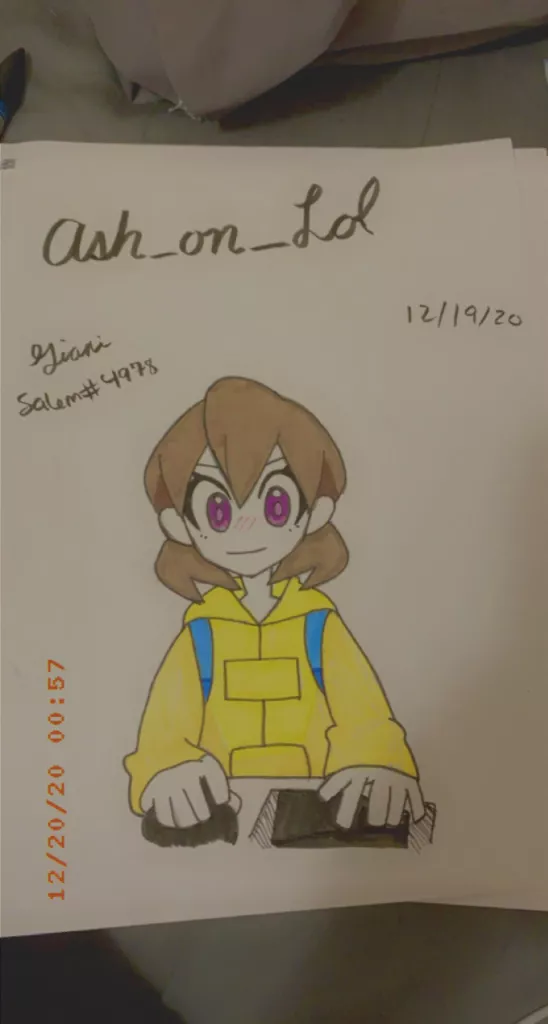 Ash_on_Lol
12/19/20
Giani
Salem#4978
12/20/20 00:57